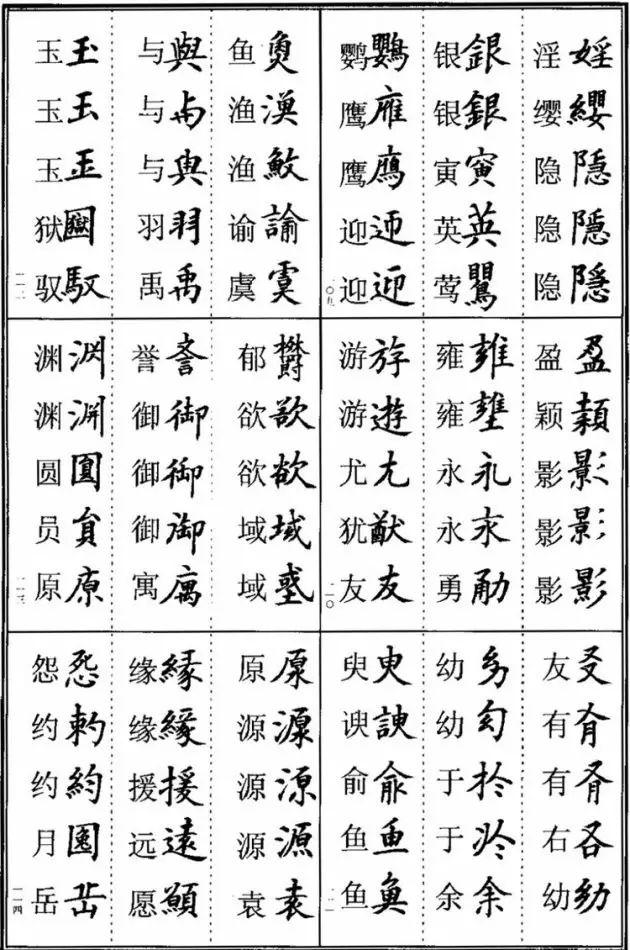 淫婬
缨纓
隐隐
隐隐
隐隱
银銀
银銀
寅寅
英英
莺鸎
鹦鸚
鹰雁
鹰鹰
迎迊
迎迎
一〇九
盈盈
颖穎
影影
影影
影影
雍雍
雍壅
永永
永永
勇勈
游斿
游遊
尤尢
犹猷
友友
一一〇
友㕛
有有
有有
右各
幼幼
幼㓜
幼幻
于扵
于於
余余
臾臾
谀諛
俞俞
鱼鱼
鱼魚
一一一
鱼魚
渔漁
渔䱷
谕諭
虞虞
与與
与与
与與
羽羽
禹禹
玉玉
玉玉
玉玉
狱圞
驭馭
一一二
郁欝
欲欲
欲欲
域域
域或
誉誉
御御
御御
御御
寓庽
渊渊
渊渊
圆圓
员負
原原
一一三
原原
源源
源源
源源
袁袁
缘縁
缘緣
援援
远遠
愿願
怨怨
约約
约約
月囝
岳岳
一一四